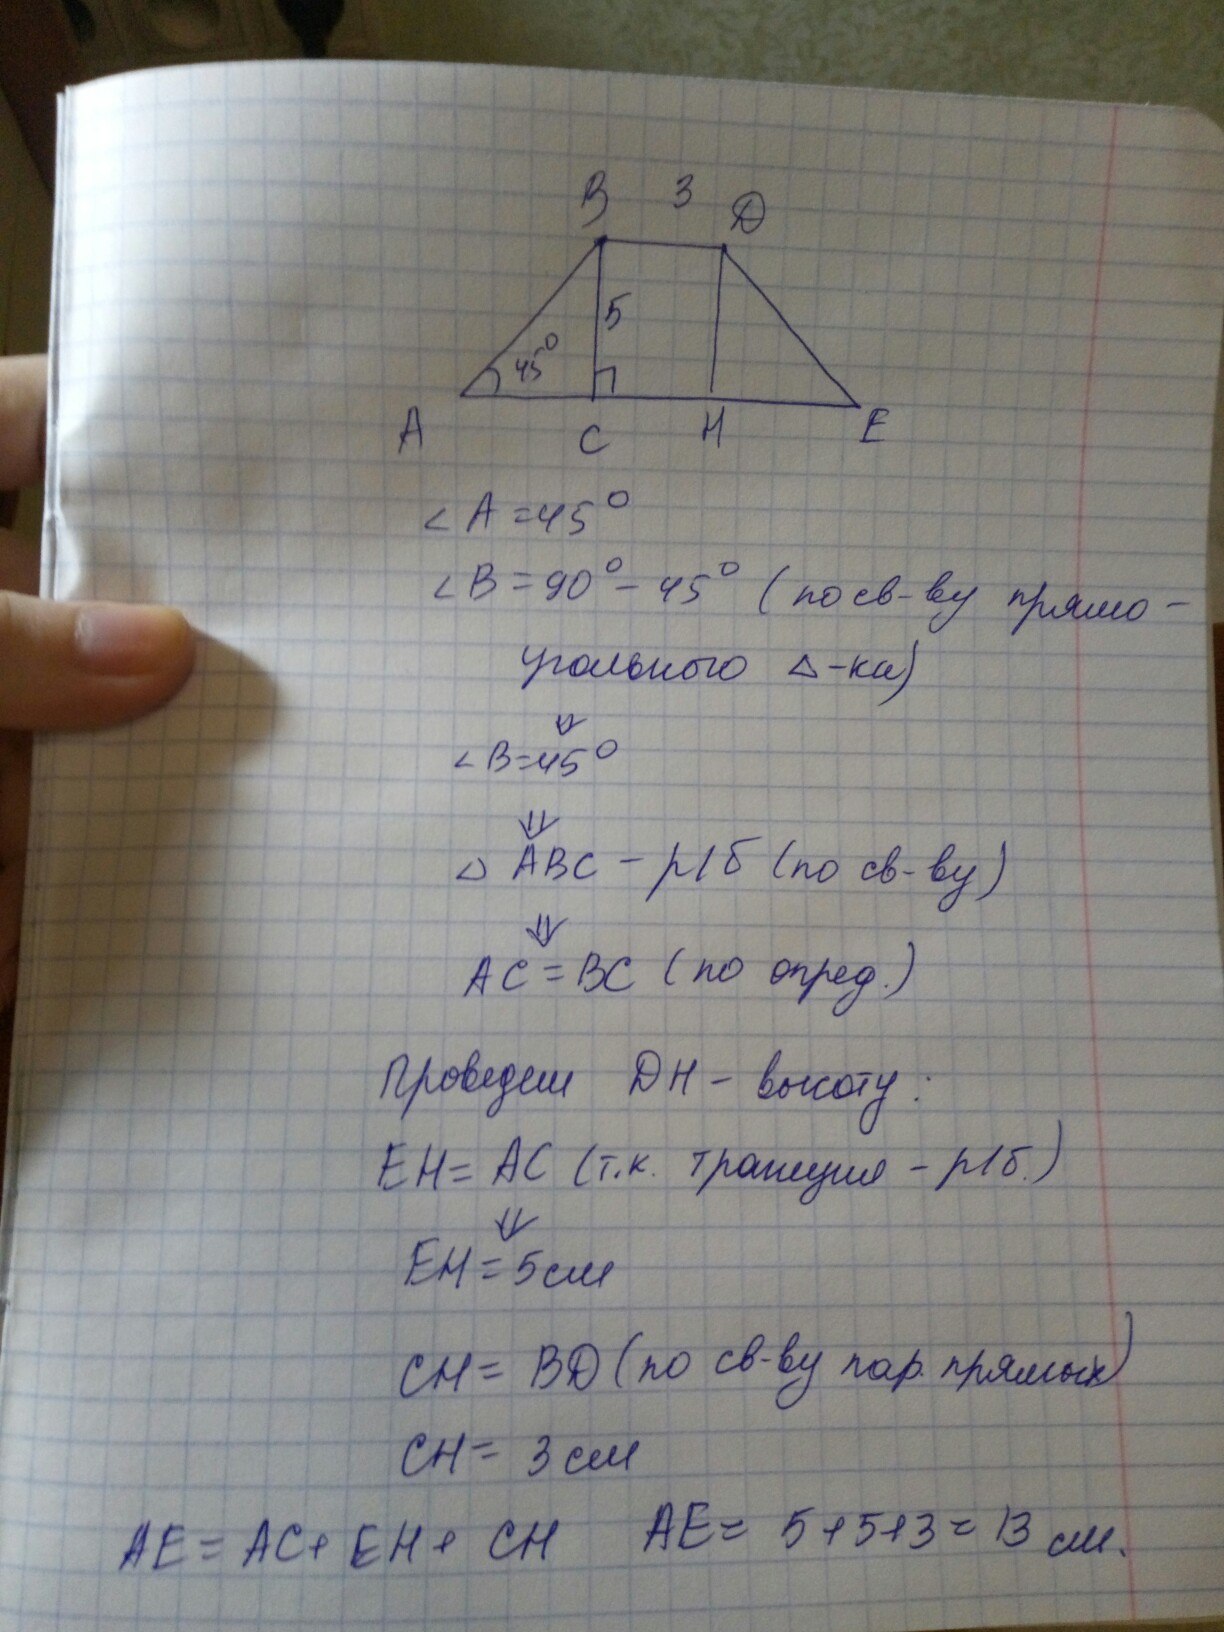 B 3 D
5
45°
A C H E
∠A=45°
∠B=90°-45° (по св-ву прямо-
угольного △-ка)
⇓
∠B=45°
⇓
△ ABC - р/б (по св-ву)
⇓
AC=BC (по опред.)
Проведем DH - высоту:
EH=AC (т.к. трапеция - р/б.)
⇓
EH=5см
CH=BD (по св-ву пар. прямых)
CH= 3см
AE= AC+ EH+ CH AE= 5+5+3=13 см.